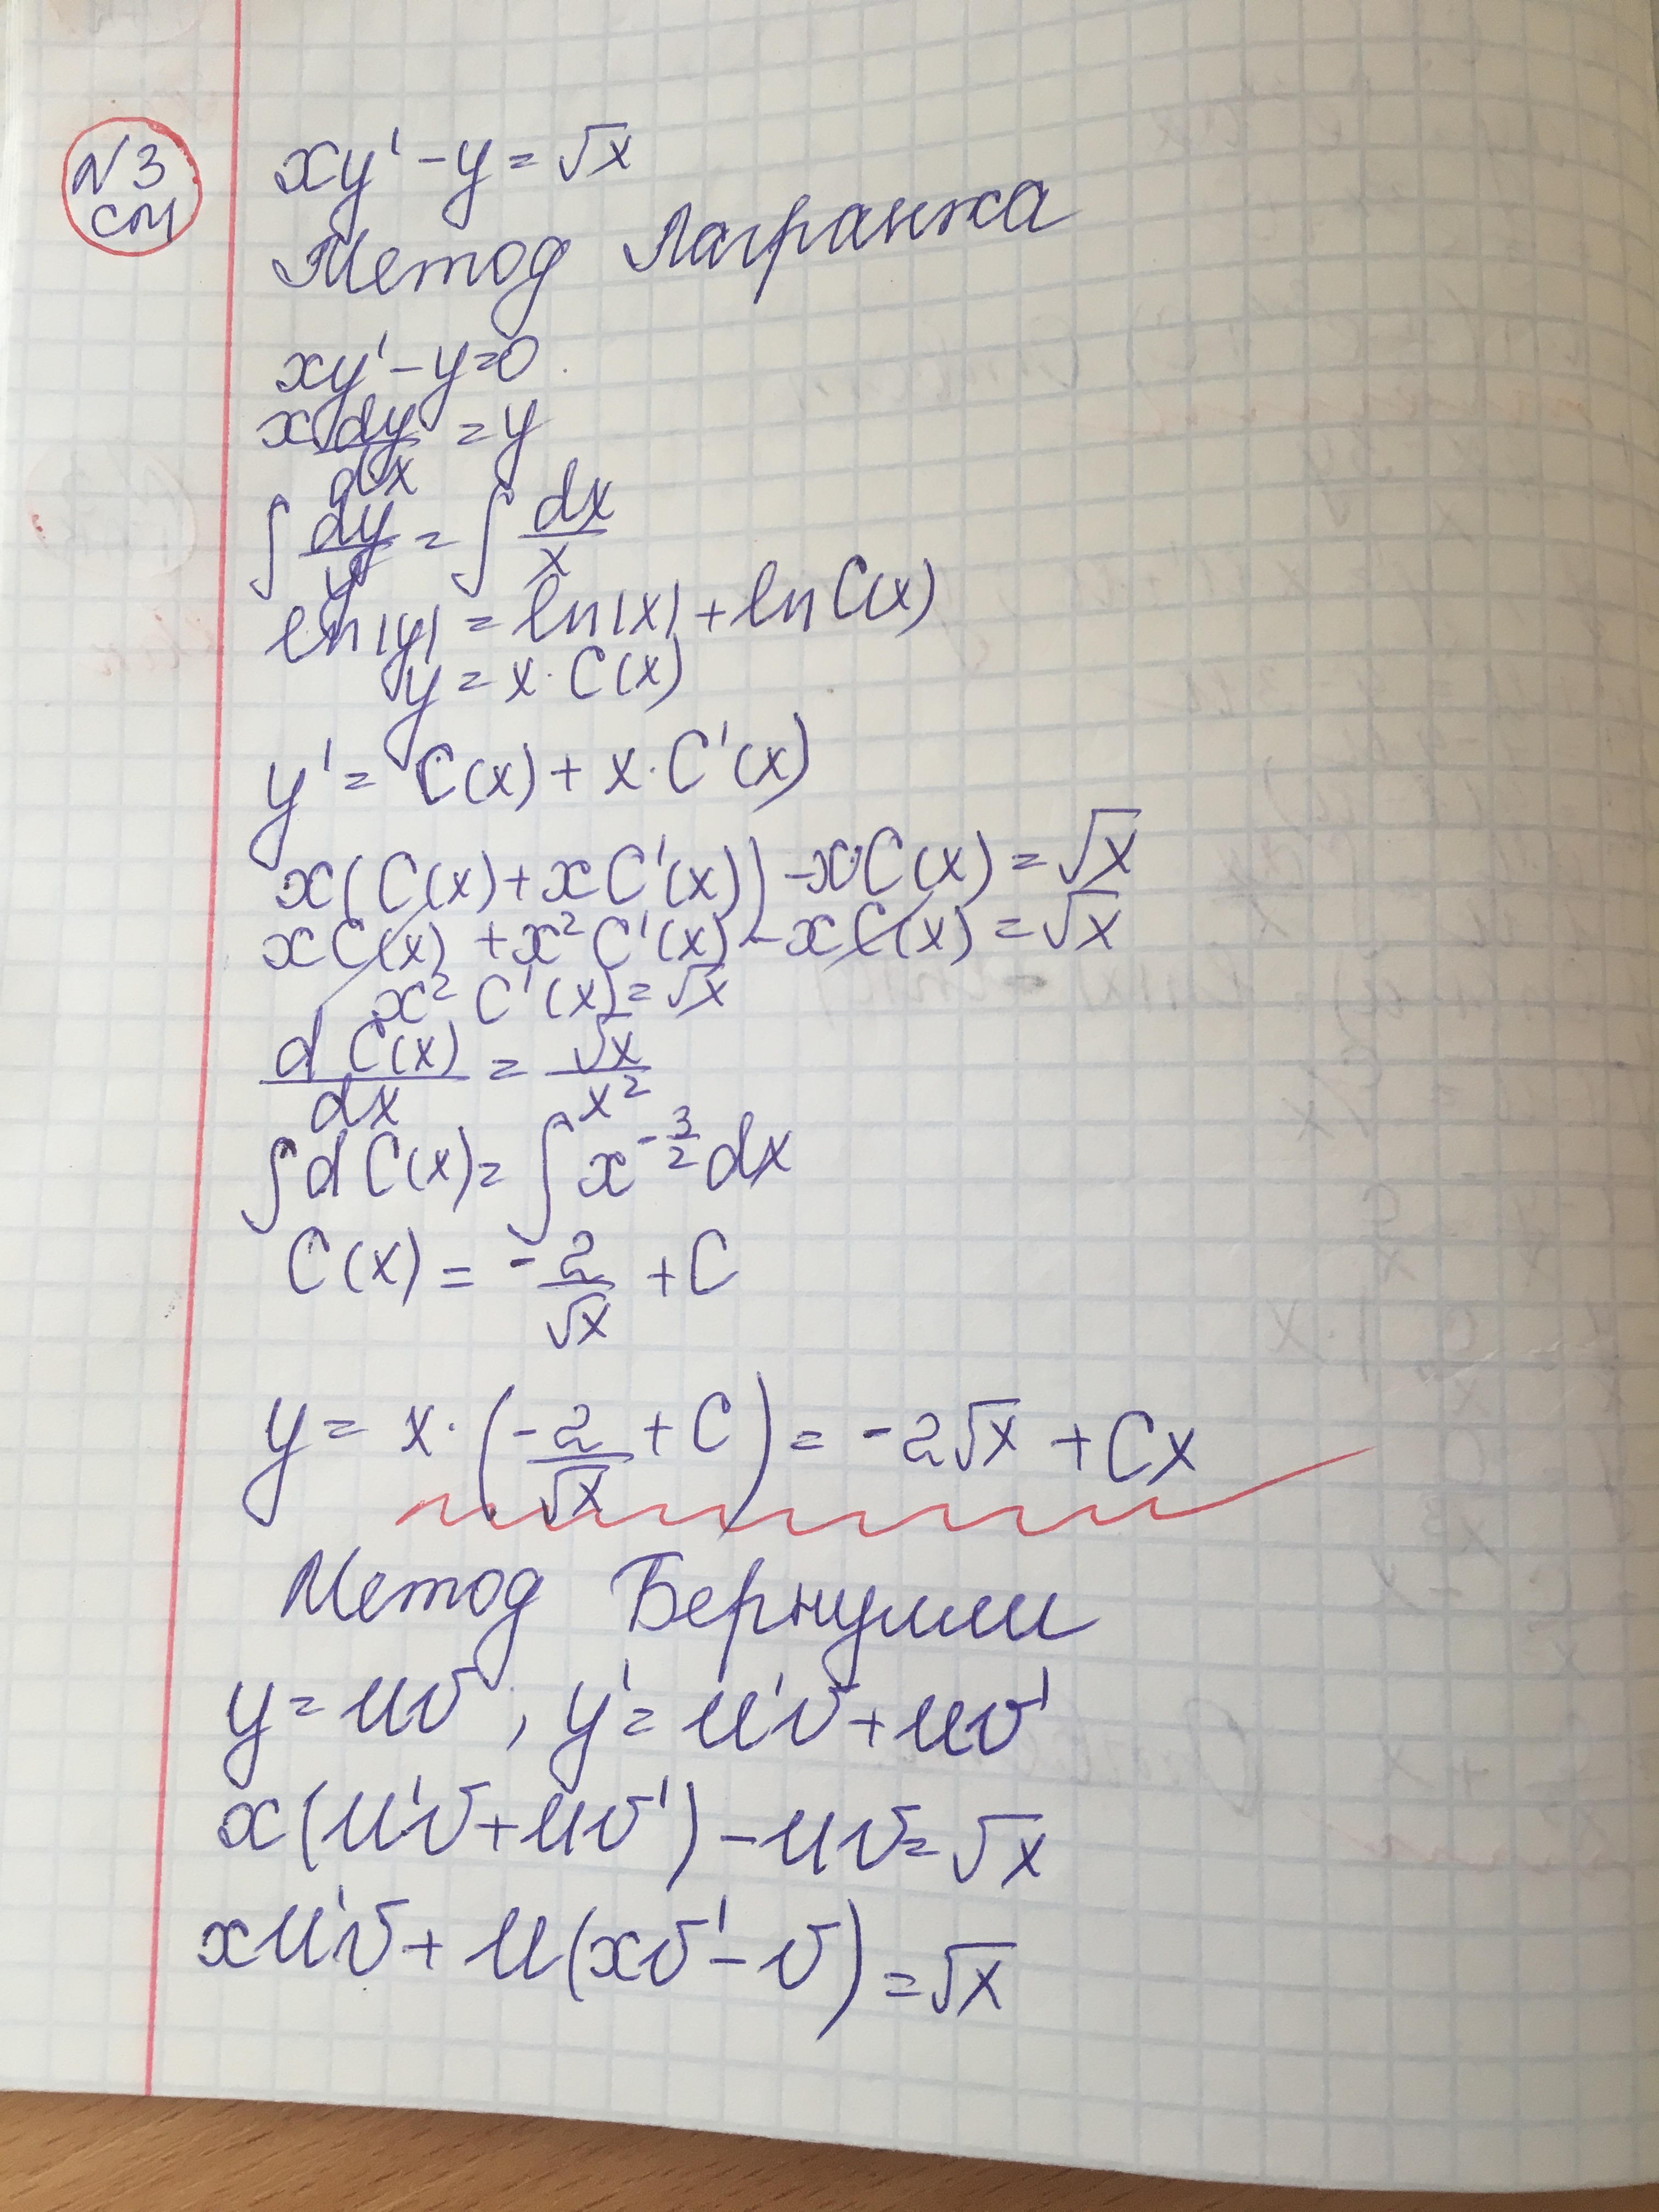 №3
см
xy' - y = √x
Метод Лагранжа
xy' - y = 0
x dy/dx = y
∫ dy/y = ∫ dx/x
ln|y| = ln|x| + ln C(x)
y = x · C(x)
y' = C(x) + x · C'(x)
x(C(x) + xC'(x)) - x·C(x) = √x
xC(x) + x² C'(x) - xC(x) = √x
x² C'(x) = √x
d C(x)/dx = √x/x²
∫ d C(x) = ∫ x^(-3/2) dx
C(x) = -2/√x + C
y = x · (-2/√x + C) = -2√x + Cx
Метод Бернулли
y = uv, y' = u'v + uv'
x(u'v + uv') - uv = √x
xu'v + u(xv' - v) = √x